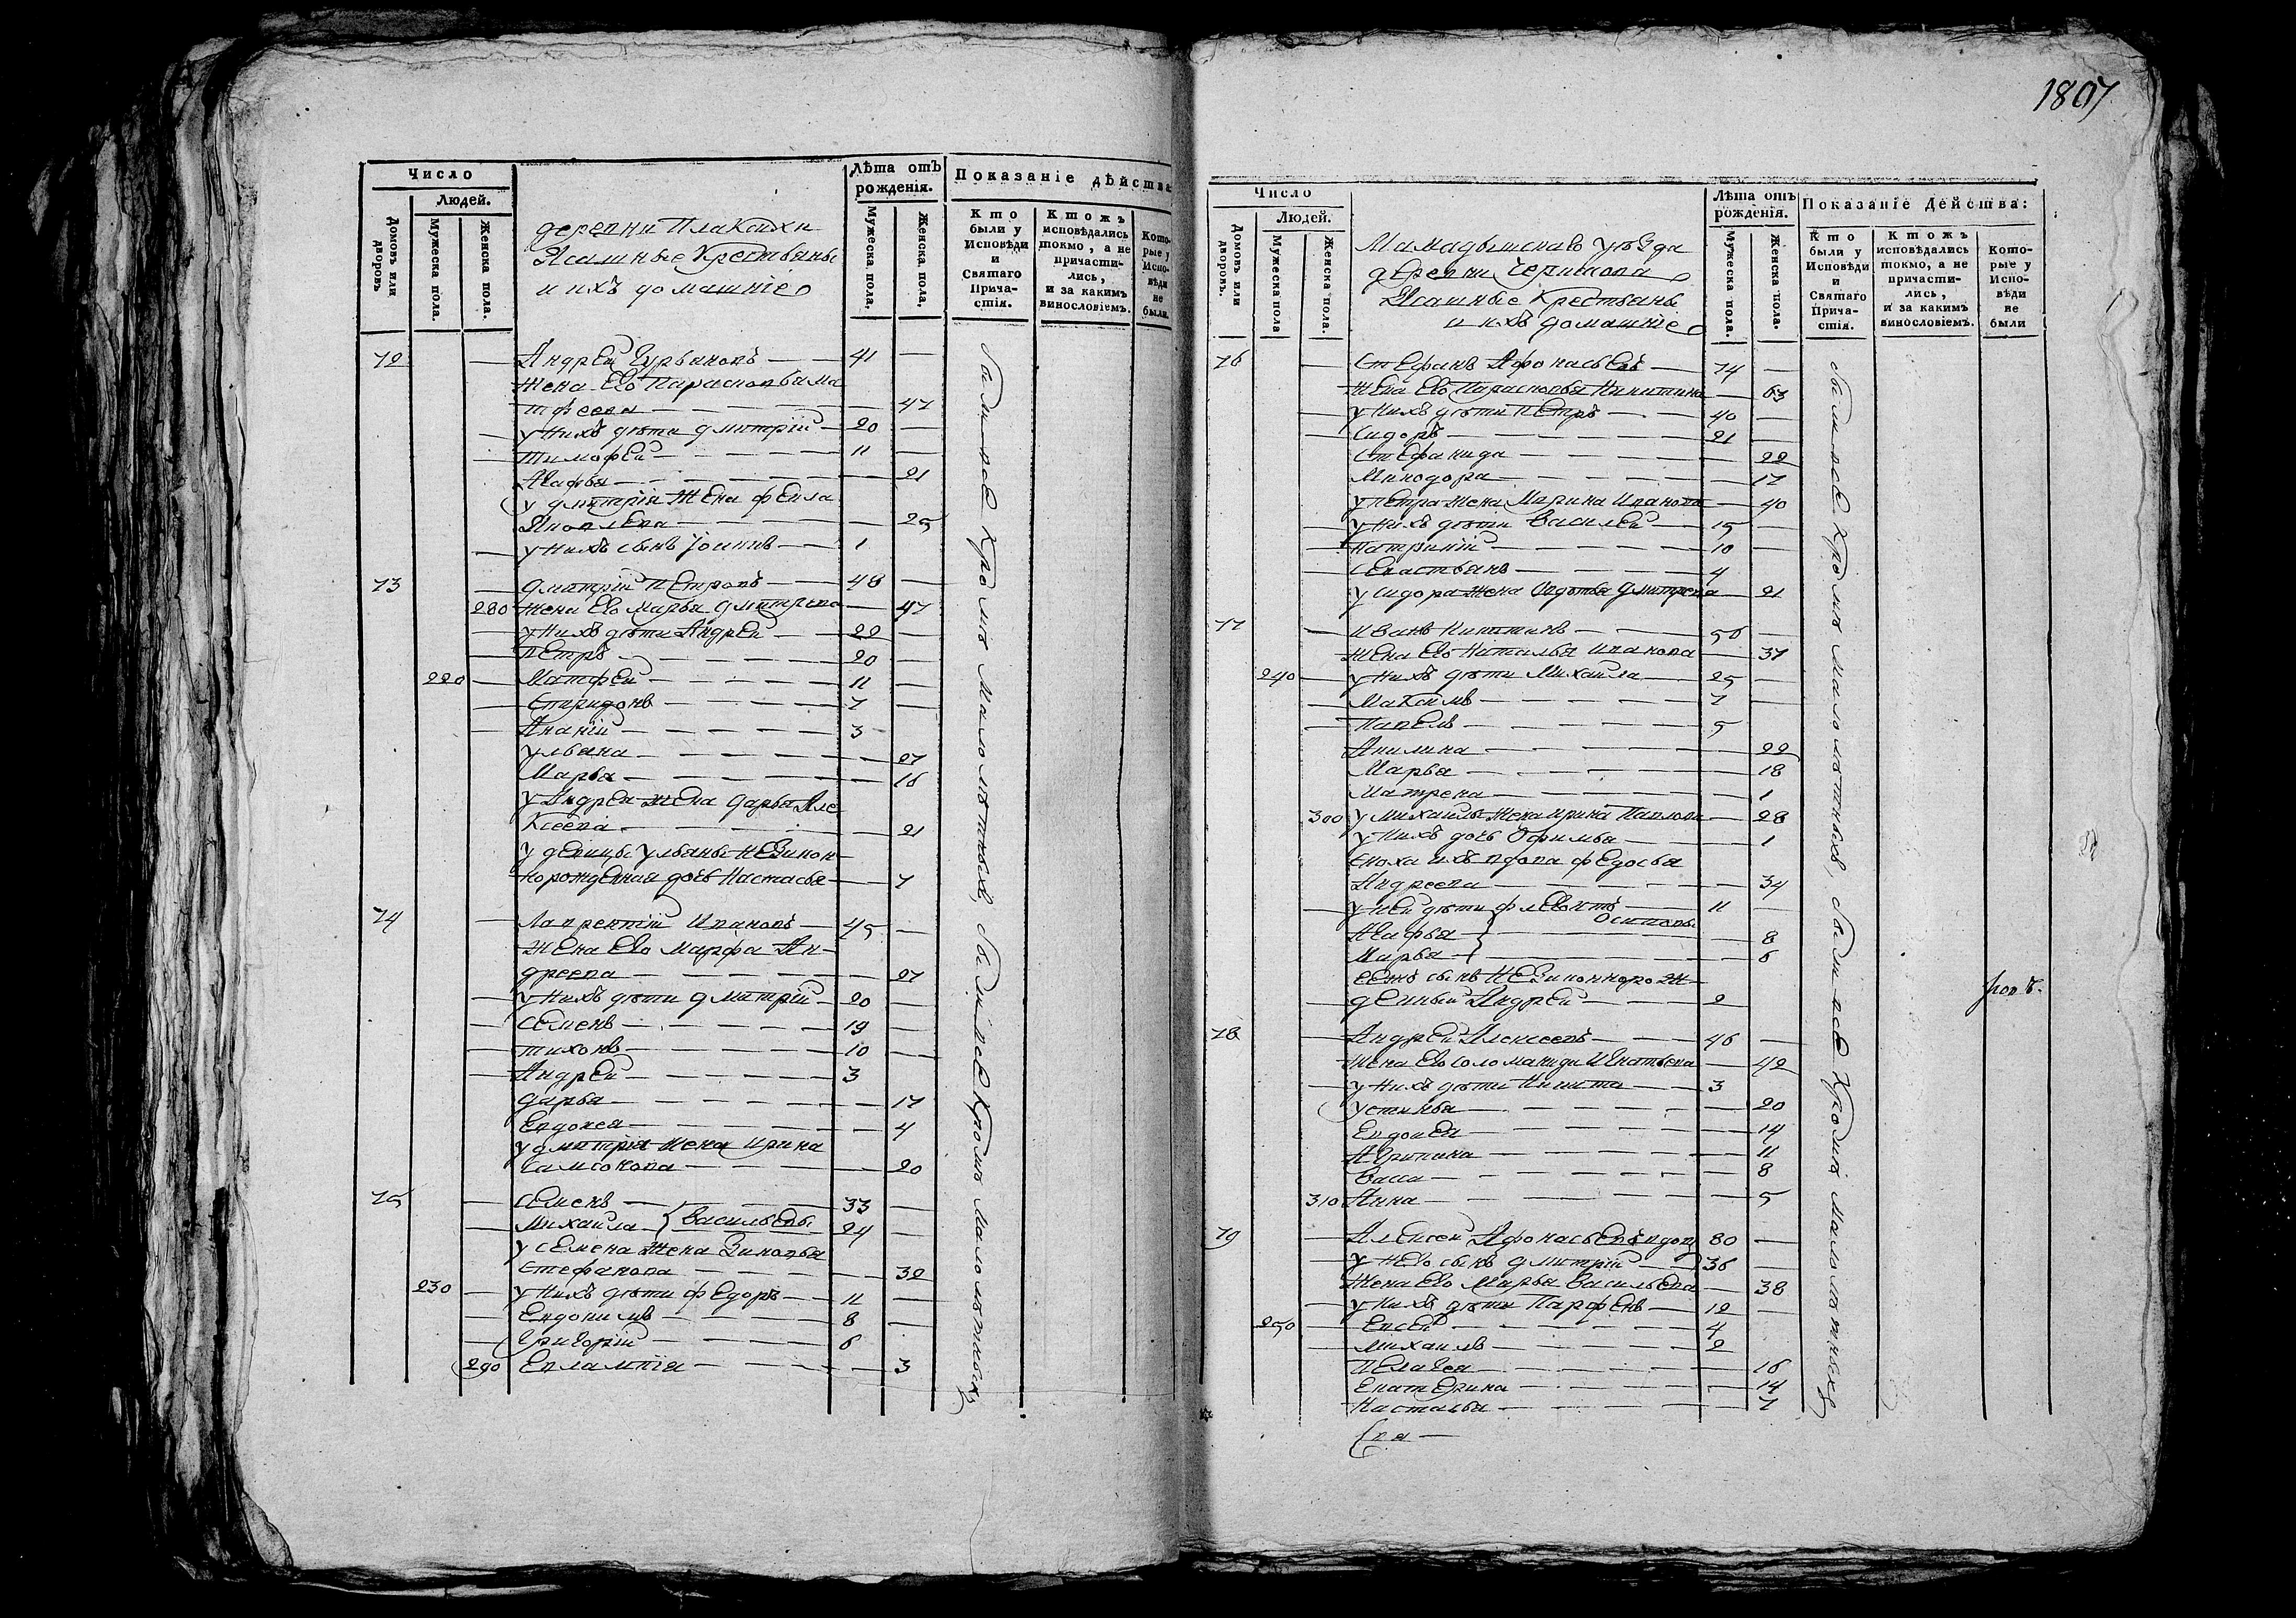 Число
Людей.
Домовъ или дворовъ.
Мужеска пола.
Женска пола.
деревни Плакихи
Ясашные Крестьяны
и ихъ домашніе
Лѣта отъ рожденія.
Мужеска пола.
Женска пола.
Показаніе дѣйства
Кто были у Исповѣди и Святаго Причастія.
Ктожъ исповѣдались токмо, а не причастились, и за какимъ винословіемъ.
Которые у Исповѣди не были.
72 — Андрей Гурьяновъ — 41 —
жена его Парасковья Ма
тфеева — 47
— у нихъ дѣти Дмитрій — 20 —
— Тимофей — 11 —
Агафья — 21
у Дмитрія жена Фекла
Яковлева — 25
— у нихъ сынъ Іоаннъ — 1
73 — Дмитрій Петровъ — 48 —
280 жена его Марья Дмитрева — 47
— у нихъ дѣти Андрей — 22 —
— Петръ — 20 —
220 — Матфей — 11 —
— Спиридонъ — 7 —
— Ананій — 3 —
Ульяна — 27
Марья — 16
у Андрея жена Дарья Але
ксеева — 21
у девицы Ульяны незакон-
норожденная дочь Настасья — 7
74 — Лаврентій Ивановъ — 45 —
жена его Марфа Ан-
дреева — 27
— у нихъ дѣти Дмитрій — 20 —
— Семенъ — 19 —
— Тихонъ — 10 —
— Андрей — 3
Дарья — 17
Евдокея — 4
у Дмитрія жена Ирина
Самсонова — 20
75 — Семенъ — 33 —
— Михаила } Васильевы 24 —
у Семена жена Зиновья
Стефанова — 32
230 — у нихъ дѣти Федоръ — 11 —
— Евдокимъ — 8 —
— Григорій — 6
290 Евлампія — 3
были все Кроме Малолѣтныхъ, были все Кроме малолѣтныхъ
1807
Число
Людей.
Домовъ или дворовъ.
Мужеска пола
Женска пола.
Мамадышскаго уѣзда
деревни Черимова
Ясашные Крестьяны
и ихъ домашніе
Лѣта отъ рожденія.
Мужеска пола.
Женска пола.
Показаніе Дѣйства:
Кто были у Исповѣди и Святаго Причастія.
Ктожъ исповѣдались токмо, а не причастились, и за какимъ винословіемъ.
Которые у Исповѣди не были
76 — Стефанъ Афонасьевъ — 74 —
жена его Парасковья Никитина — 63
— у нихъ дѣти Петръ — 40 —
— Сидоръ — 21 —
Стефанида — 22
Минодора — 17
у Петра жена Марина Иванова — 40
— у нихъ дѣти Василей — 15 —
— Патрикій — 10 —
— Севастьянъ — 4
у Сидора жена Авдотья Дмитрева — 21
77 — Иванъ Никитинъ — 56 —
жена его Наталья Иванова — 37
240 — у нихъ дѣти Михаила — 25 —
— Максимъ — 7
— Павелъ — 5
Акилина — 22
Марья — 18
Матрена — 1
300 у Михаилы жена Ирина Павлова — 28
у нихъ дочь Офимья — 1
сноха ихъ вдова Федосья
Андреева — 34
— у ней дѣти Флегонтъ — 11 —
Агафья } Осиповы — 8
Марья — 6
ееже сынъ незаконнорож-
— денный Андрей — 2
78 — Андрей Алексеевъ — 46 —
жена его Соломанида Игнатьева — 42
— у нихъ дѣти Никита — 3
Устинья — 20
Евдокея — 14
Агрипина — 11
Васса — 8
310 Анна — 5
79 — Алексей Афонасьевъ вдов 80 —
— у него сынъ Дмитрій — 36 —
жена его Марья Васильева — 38
— у нихъ дѣти Парфенъ — 12 —
250 — Евсей — 4
— Михаилъ — 2
Пелагея — 16
Екатерина — 14
Настасья — 7
были все Кроме малолѣтныхъ, были все Кроме Малолѣтныхъ